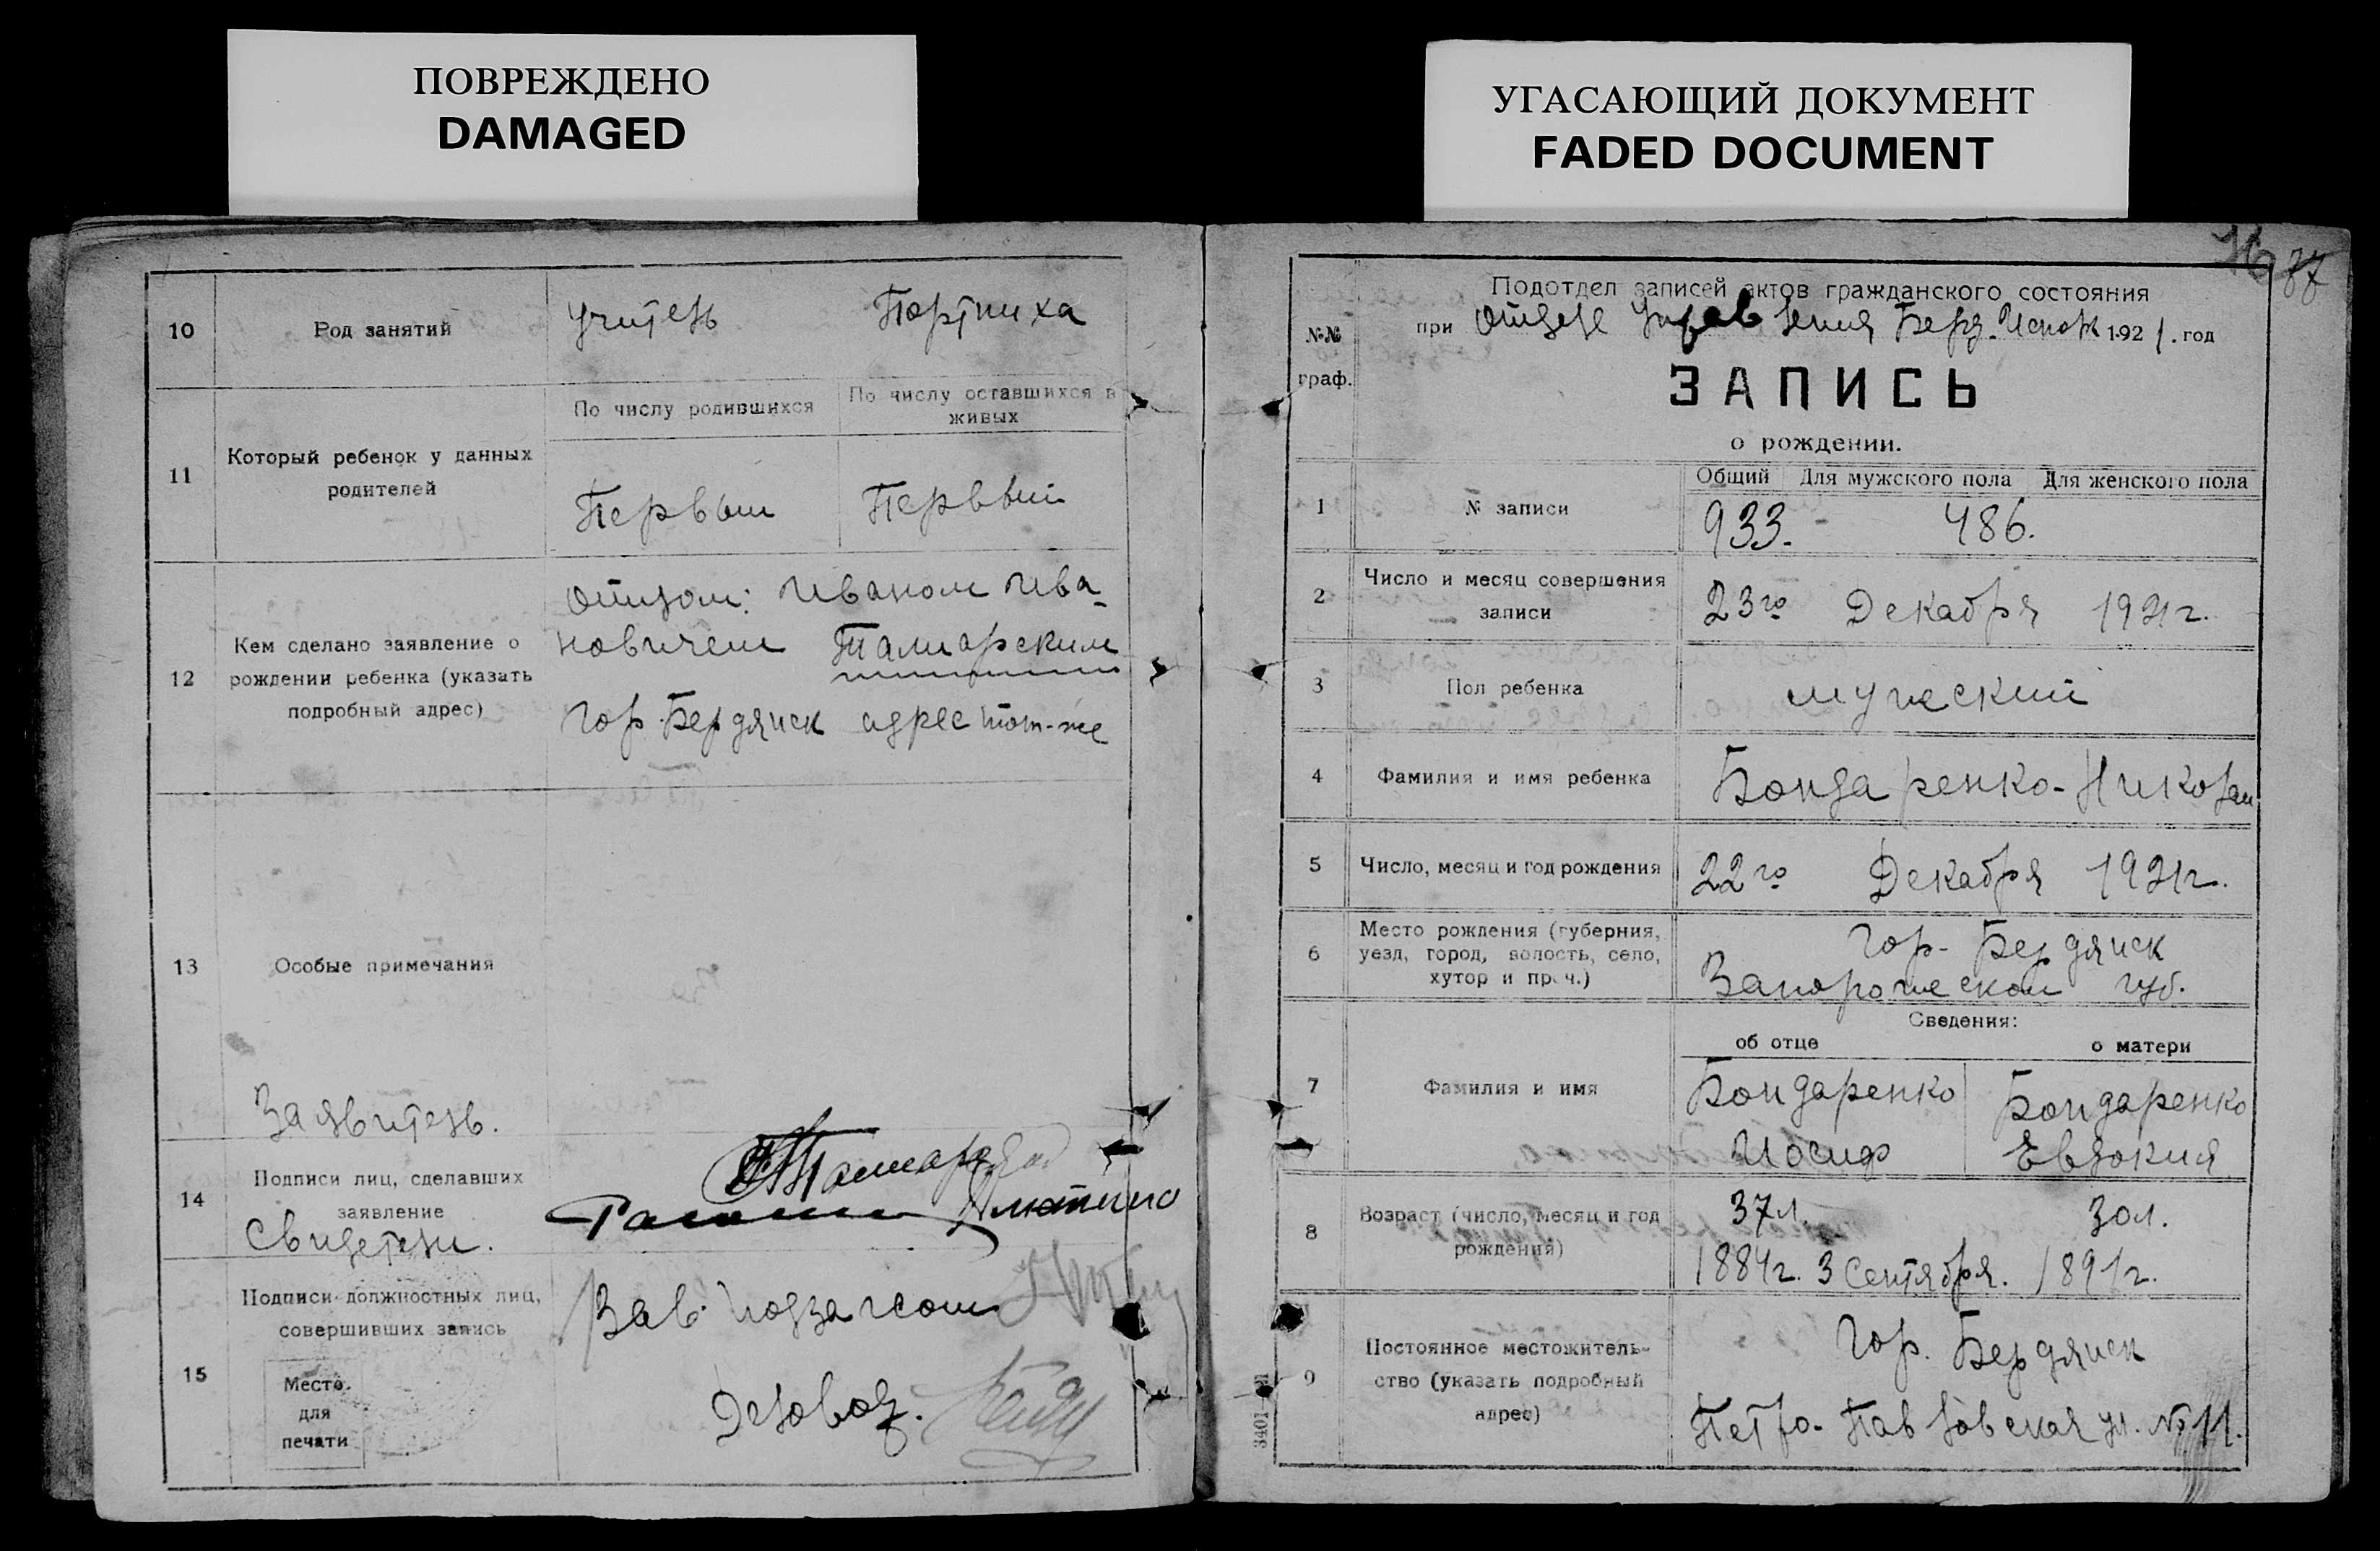 ПОВРЕЖДЕНО
DAMAGED
УГАСАЮЩИЙ ДОКУМЕНТ
FADED DOCUMENT
10
Род занятий
Учитель
Портниха
11
Который ребенок у данных
родителей
По числу родившихся
По числу оставшихся в
живых
Первый
Первый
12
Кем сделано заявление о
рождении ребенка (указать
подробный адрес)
Отцом: Иваном Ива-
новичем
Гор. Бердянск адрес тот-же
13
Особые примечания
Заявитель.
14
Подписи лиц, сделавших
заявление
Свидетели.
15
Подписи должностных лиц,
совершивших запись
Место
для
печати
Зав. подзагсом
Деловод.
77
№№
граф.
Подотдел записей актов гражданского состояния
при Отделе Управления Берд. Исполк 1921. год
ЗАПИСЬ
о рождении.
1
№ записи
Общий
Для мужского пола
Для женского пола
933.
486.
2
Число и месяц совершения
записи
23го Декабря 1921г.
3
Пол ребенка
мужеский
4
Фамилия и имя ребенка
Бондаренко-Николай
5
Число, месяц и год рождения
22го Декабря 1921г.
6
Место рождения (губерния,
уезд, город, волость, село,
хутор и проч.)
Гор. Бердянск
Запорожской губ.
7
Фамилия и имя
Сведения:
об отце
о матери
Бондаренко
Иосиф
Бондаренко
Евдокия
8
Возраст (число, месяц и год
рождения)
37л.
1884г. 3 Сентября.
30л.
1891г.
9
Постоянное местожитель-
ство (указать подробный
адрес)
Гор. Бердянск
Петро-Павловская ул. № 11.
3401